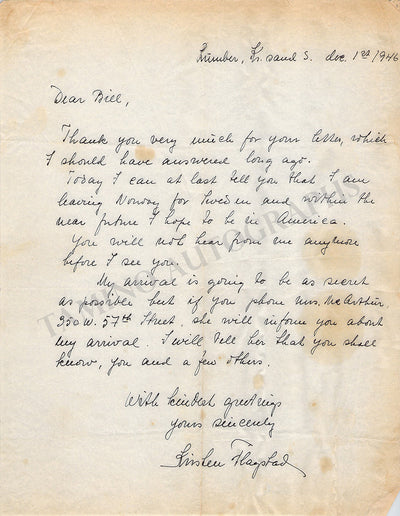 Lumber, Kr. sand S. dec. 1st 1946
Dear Bill,
Thank you very much for your letter, which
I should have answered long ago.
Today I can at last tell you that I am
leaving Norway for Sweden and within the
near future I hope to be in America.
You will not hear from me anymore
before I see you.
My arrival is going to be as secret
as possible but if you phone Mrs. McArthur,
350 W. 57th Street, she will inform you about
my arrival. I will tell her that you shall
know, you and a few others.
With kindest greetings
yours sincerely
Kirsten Flagstad
TAMINO AUTOGRAPHS